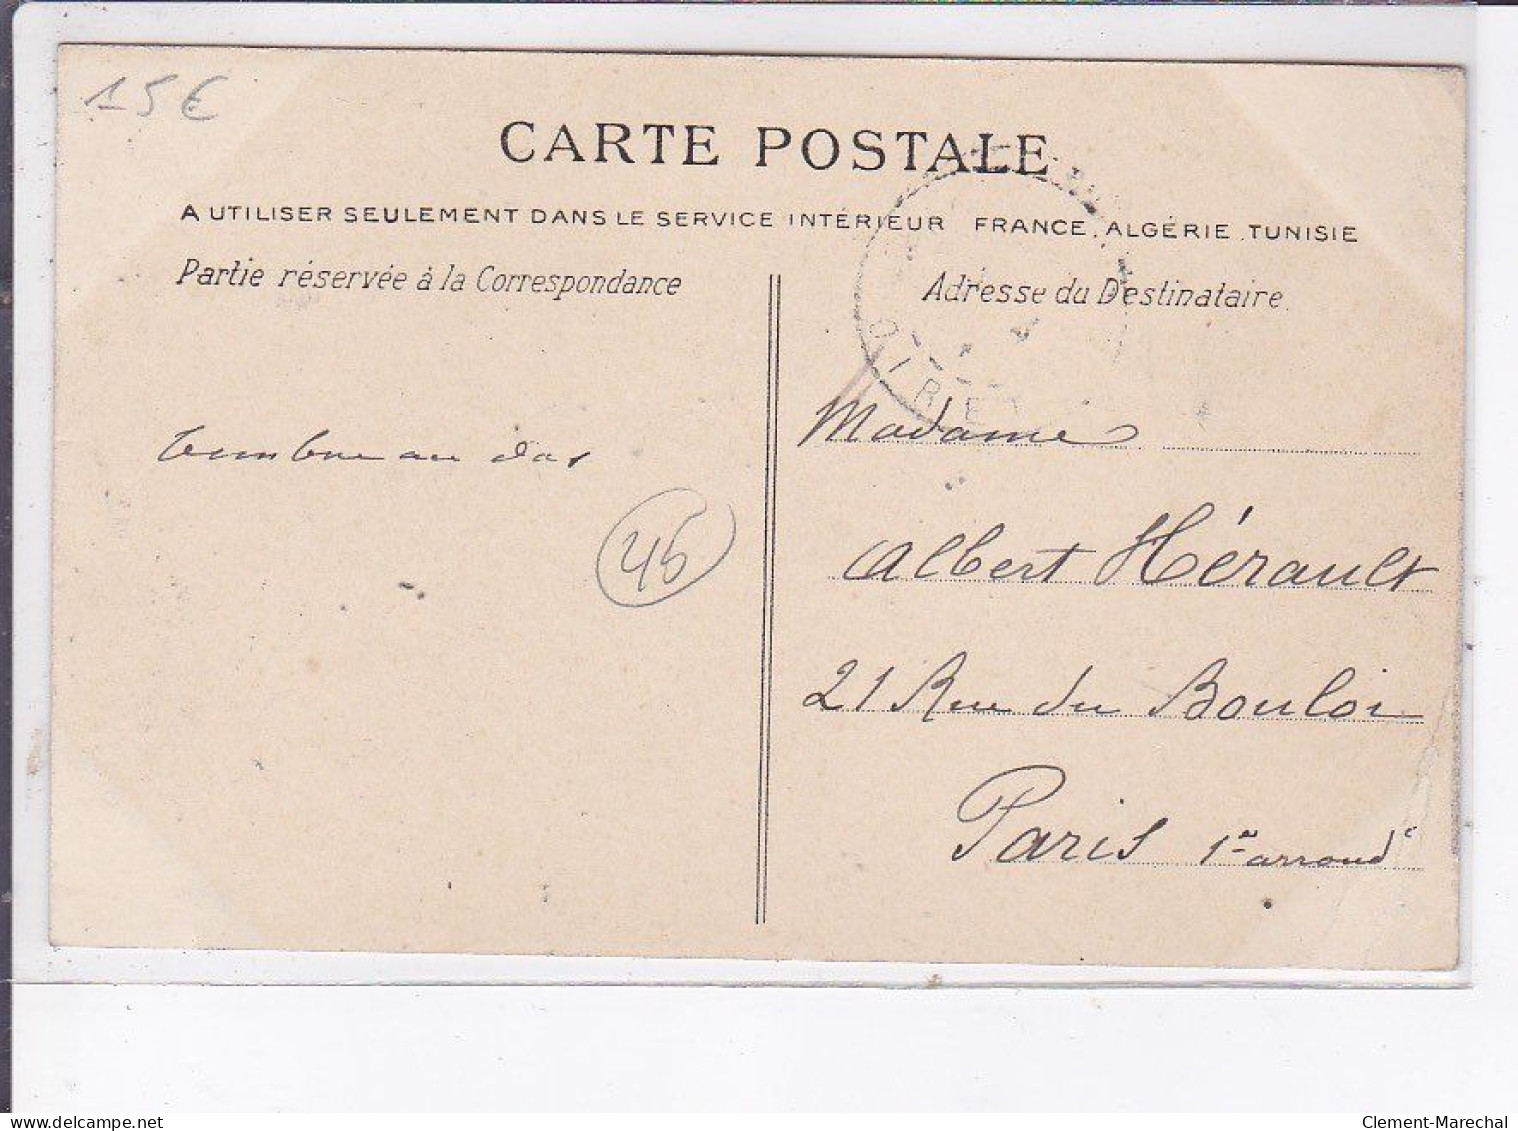 15 €
CARTE POSTALE
A UTILISER SEULEMENT DANS LE SERVICE INTÉRIEUR FRANCE, ALGÉRIE, TUNISIE
Partie réservée à la Correspondance
Adresse du Destinataire
au dos
45
Madame
Albert Hérault
21 Rue du Bouloi
Paris 1er arrondt
delcampe.net
Clement-Marechal